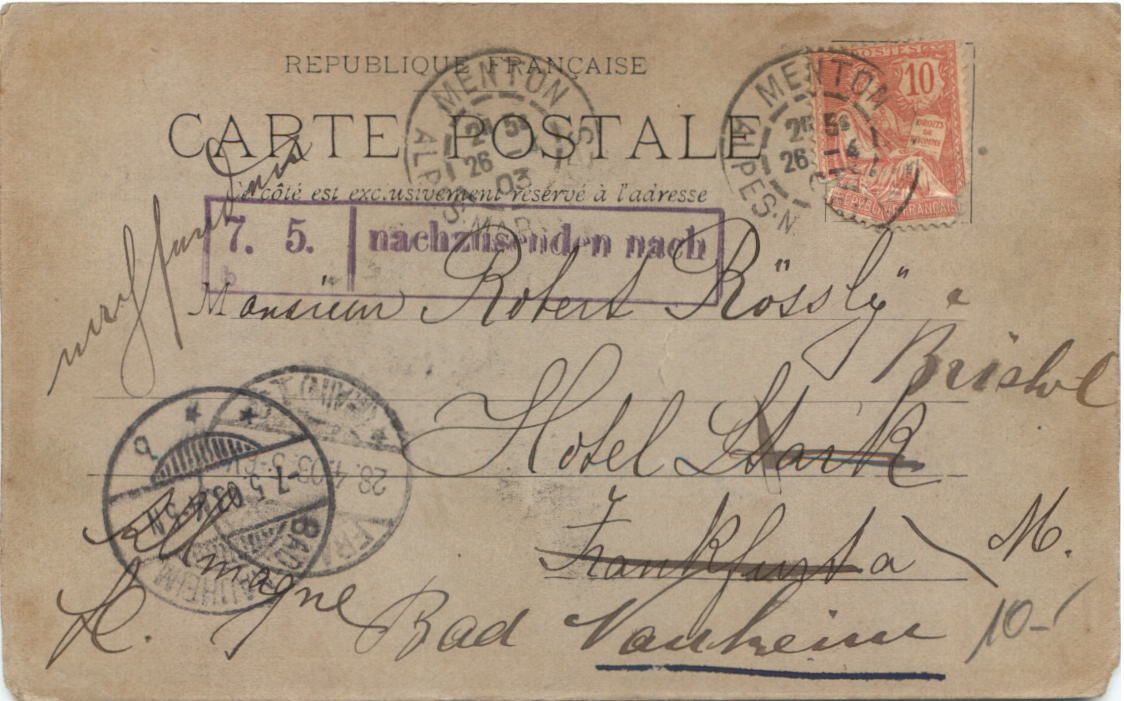 REPUBLIQUE FRANÇAISE
CARTE POSTALE
Ce côté est exclusivement réservé à l'adresse
POSTES
10
DROITS DE L'HOMME
REPUBLIQUE FRANÇAISE
MENTON
26 1
03
ALPES-MAR
MENTON
26
ALPES-M
7. 5. nachzusenden nach
b
Monsieur Robert Rössly
Bristol
Hotel Stark
Frankfurt a M.
Allmagne
H. Bad Nauheim
10-
28.4.03. 5-6N
FRA
(MAIN)
-7.5.03
BAD NAUHEIM